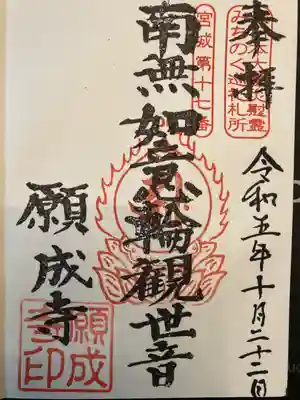 奉拝
東日本大震災慰霊
みちのく巡礼札所
宮城第十七番
令和五年十月二十二日
南無如意輪観世音
願成寺
願成
寺印